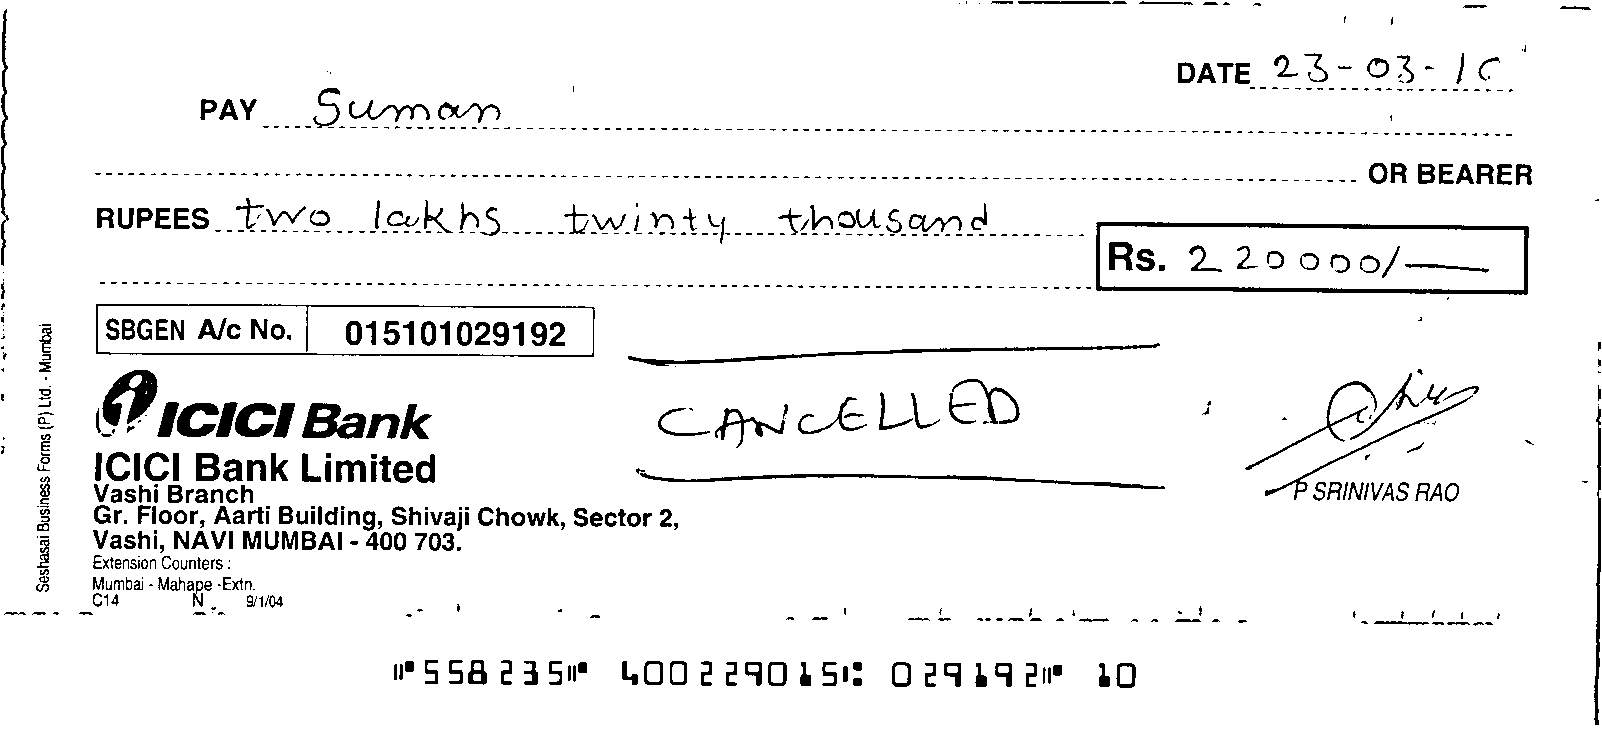 DATE 23-03-1
PAY Suman
OR BEARER
RUPEES two lakhs twinty thousand
Rs. 220000/-
SBGEN A/c No. 015101029192
ICICI Bank
CANCELLED
ICICI Bank Limited
Vashi Branch
P SRINIVAS RAO
Gr. Floor, Aarti Building, Shivaji Chowk, Sector 2,
Vashi, NAVI MUMBAI - 400 703.
Extension Counters :
Mumbai - Mahape -Extn.
C14 N 9/1/04
Seshasai Business Forms (P) Ltd. - Mumbai
⑈558235⑈ 400229015⑆ 029192⑈ 10